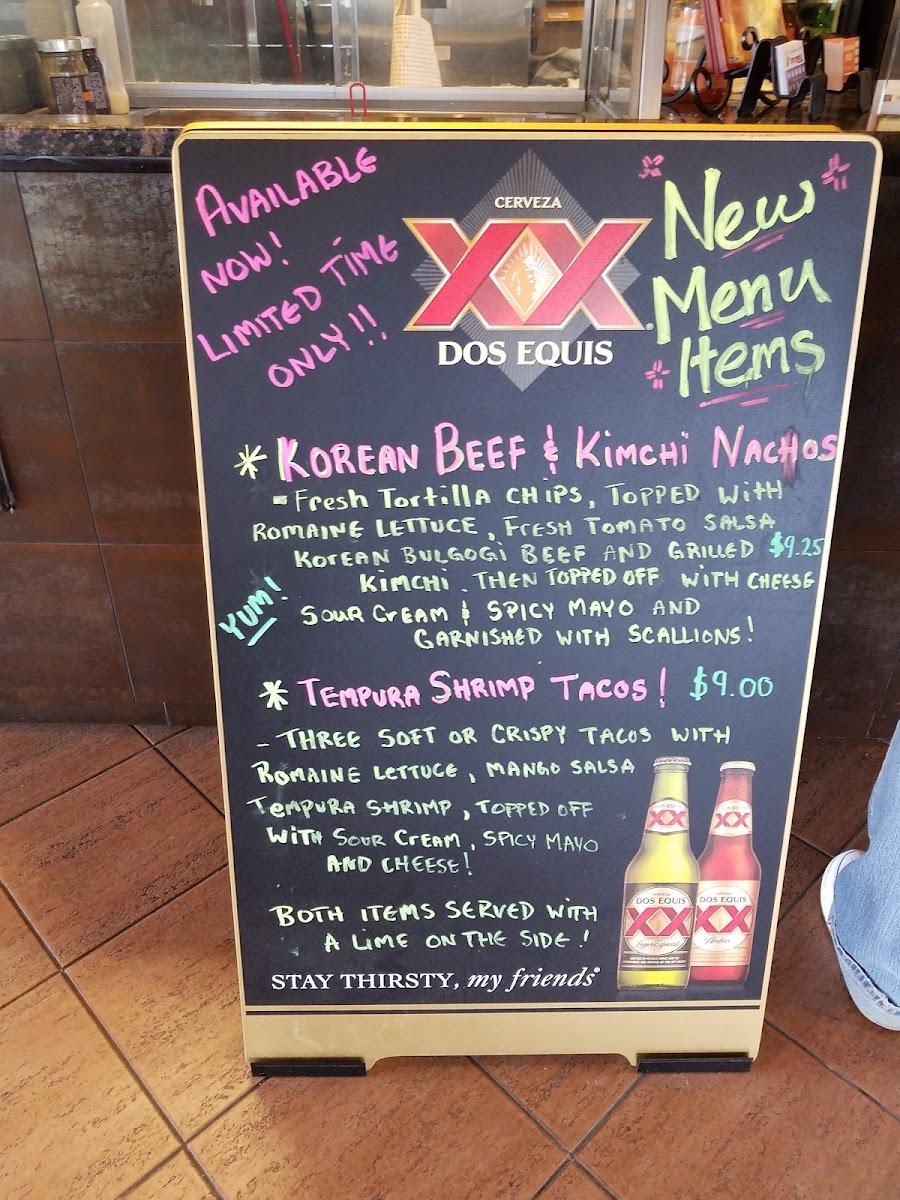 AVAILABLE
NOW!
LIMITED TIME
ONLY!!
CERVEZA
XX
DOS EQUIS
New
Menu
Items
* KOREAN BEEF & KIMCHI NACHOS
- FRESH TORTILLA CHIPS, TOPPED WITH
ROMAINE LETTUCE, FRESH TOMATO SALSA
KOREAN BULGOGI BEEF AND GRILLED $9.25
KIMCHI. THEN TOPPED OFF WITH CHEESE
YUM!
SOUR CREAM & SPICY MAYO AND
GARNISHED WITH SCALLIONS!
* TEMPURA SHRIMP TACOS! $9.00
- THREE SOFT OR CRISPY TACOS WITH
ROMAINE LETTUCE, MANGO SALSA
TEMPURA SHRIMP, TOPPED OFF
WITH SOUR CREAM, SPICY MAYO
AND CHEESE!
BOTH ITEMS SERVED WITH
A LIME ON THE SIDE!
STAY THIRSTY, my friends®
XX
XX
DOS EQUIS
XX
Lager Especial
DOS EQUIS
XX
Ambar